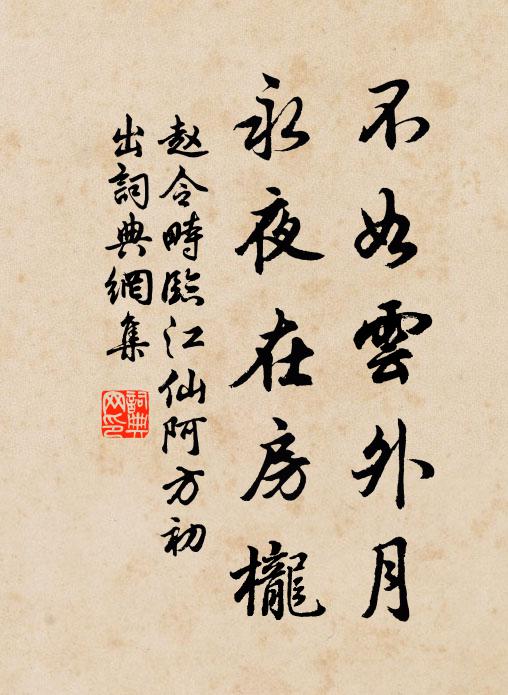 不如雲外月
永夜在房櫳
赵令畤臨江仙阿方初
出詞典網集
詞典网印